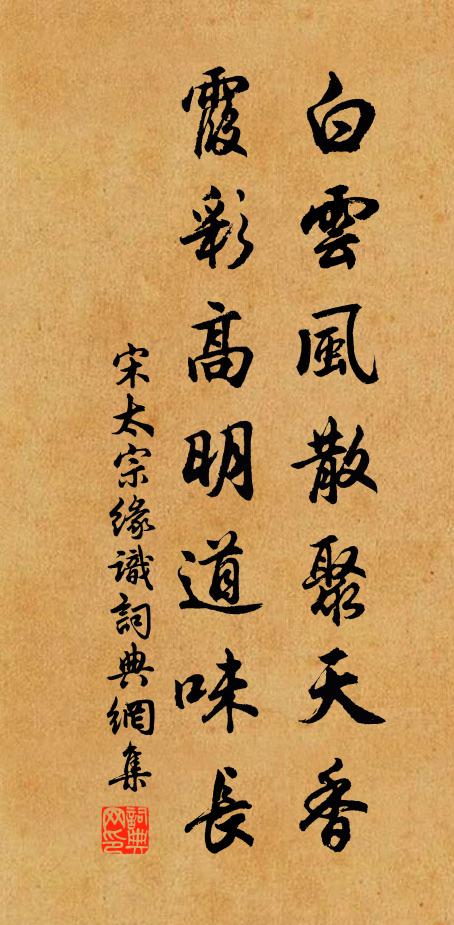 白雲風散聚天香
霞彩高明道味長
宋太宗緣識詞典網集
詞典网印